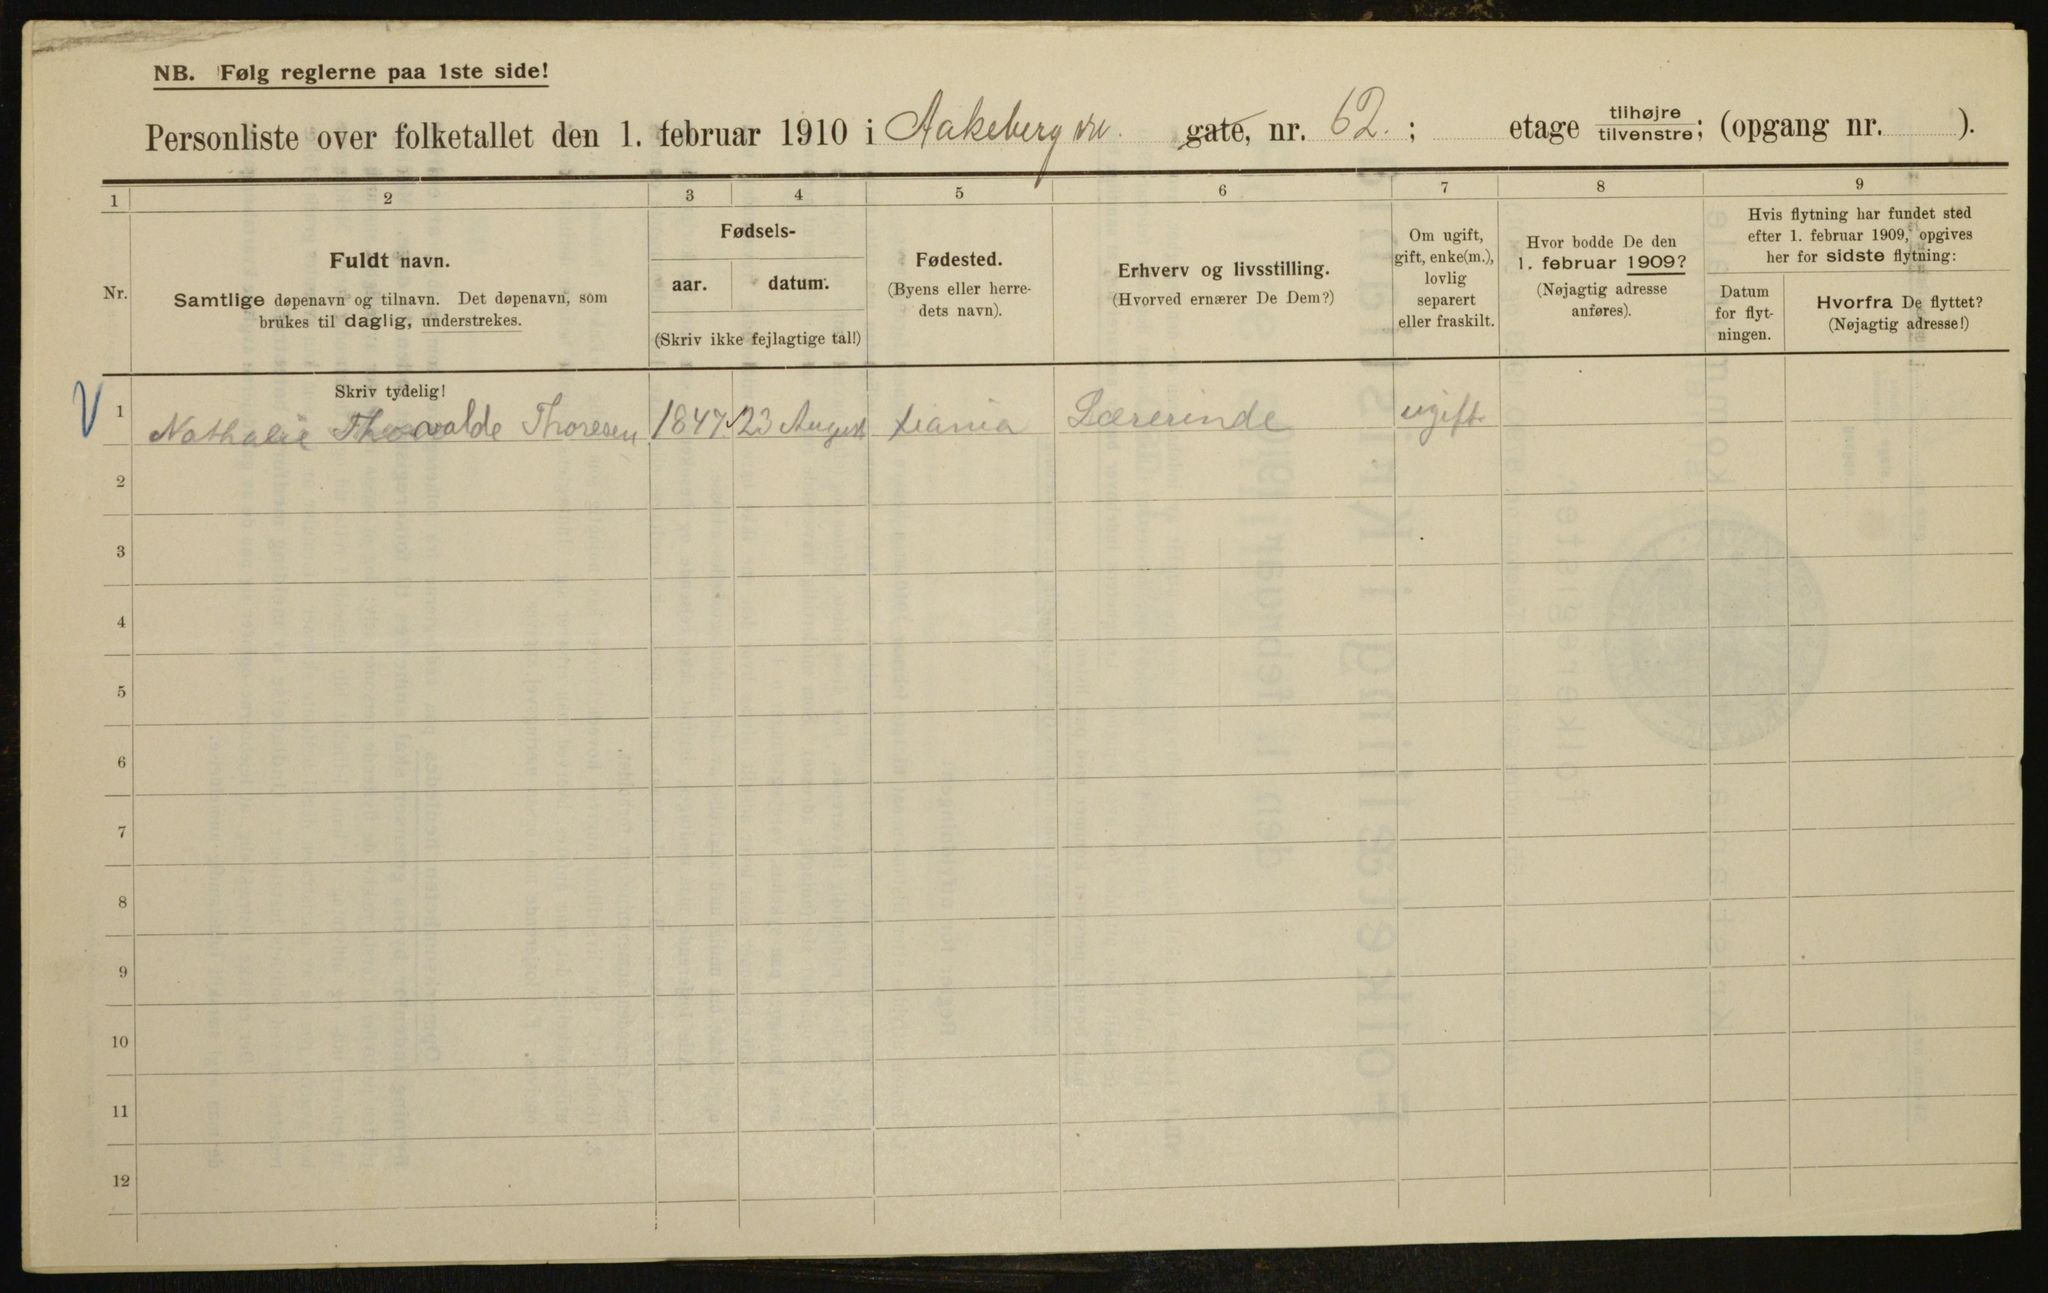 NB. Følg reglerne paa 1ste side!
Personliste over folketallet den 1. februar 1910 i Aakeberg vei. gate, nr. 62. ; etage tilhøjre tilvenstre; (opgang nr. ).
1 2 3 4 5 6 7 8 9
Nr.
Fuldt navn.
Samtlige døpenavn og tilnavn. Det døpenavn, som
brukes til daglig, understrekes.
Fødsels-
aar. datum.
(Skriv ikke fejlagtige tal!)
Fødested.
(Byens eller herre-
dets navn).
Erhverv og livsstilling.
(Hvorved ernærer De Dem?)
Om ugift,
gift, enke(m.),
lovlig
separert
eller fraskilt.
Hvor bodde De den
1. februar 1909?
(Nøjagtig adresse
anføres).
Hvis flytning har fundet sted
efter 1. februar 1909, opgives
her for sidste flytning:
Datum
for flyt-
ningen.
Hvorfra De flyttet?
(Nøjagtig adresse!)
Skriv tydelig!
V 1 Nathalie Thorvalde Thoresen 1847 23 August Xiania Lærerinde ugift
2
3
4
5
6
7
8
9
10
11
12